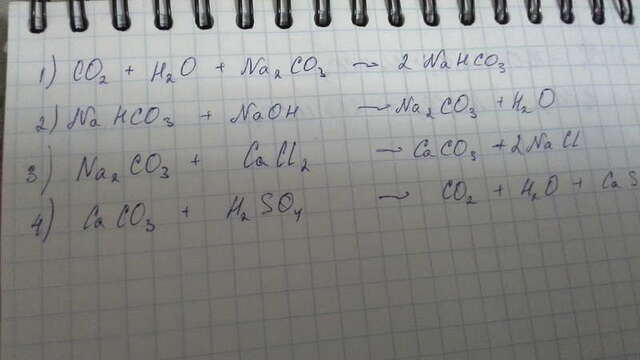 1) CO₂ + H₂O + Na₂CO₃ → 2 NaHCO₃
2) NaHCO₃ + NaOH → Na₂CO₃ + H₂O
3) Na₂CO₃ + CaCl₂ → CaCO₃ + 2NaCl
4) CaCO₃ + H₂SO₄ → CO₂ + H₂O + CaS